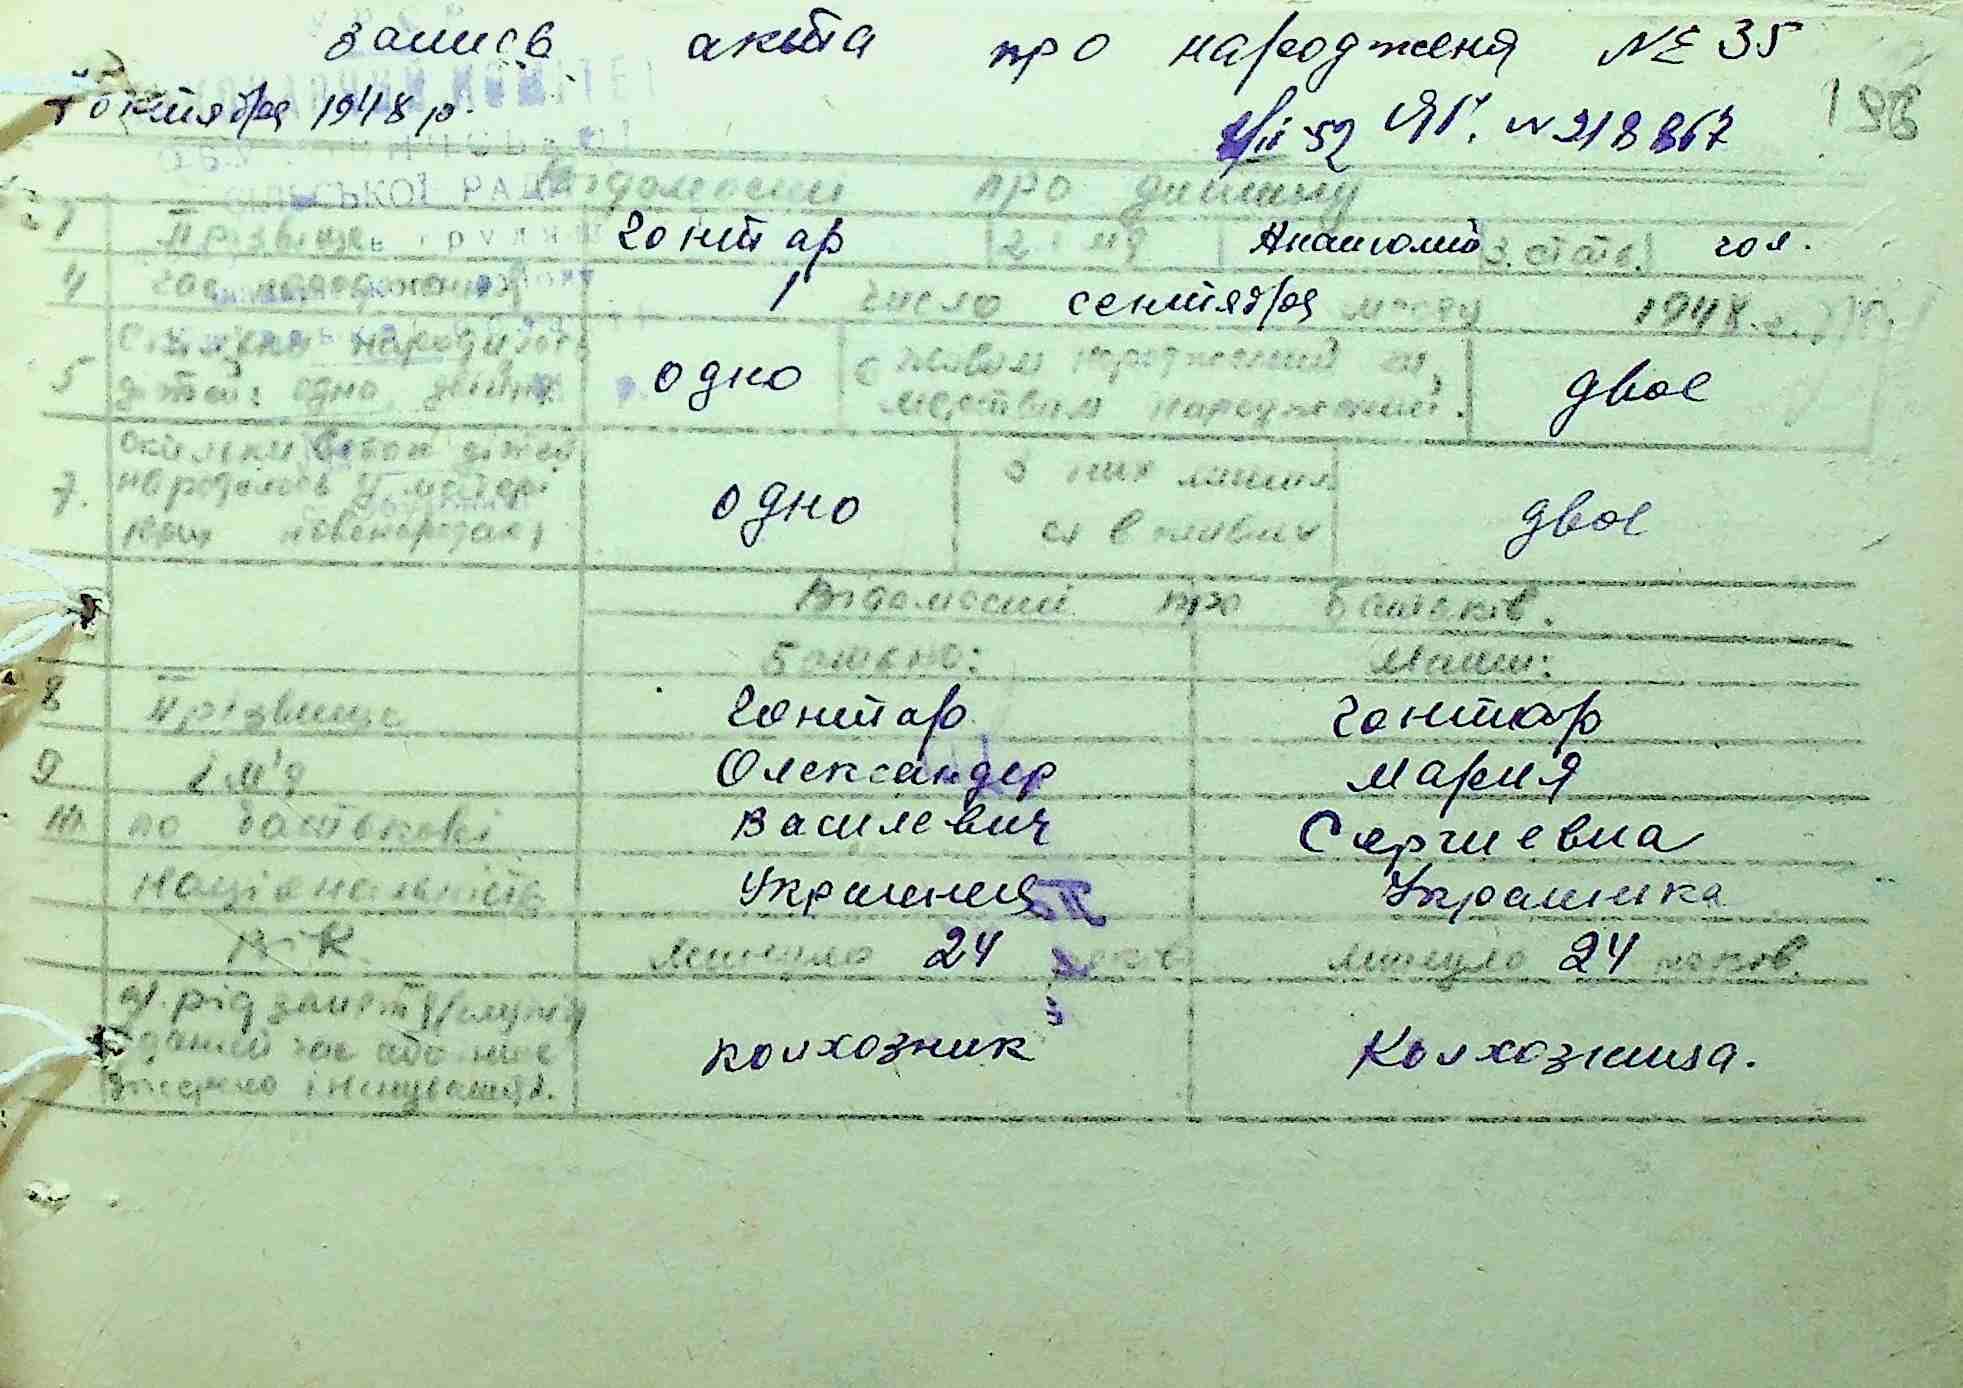 запись акта про народженя № 35
октября 1948 р.
52 ЯГ. N 218867
198
СІЛЬСЬКОЇ РАДИ
Відомости про дитину
1 Прізвище Гонтар 2 імя Анатолий 3. стать. чол.
4 час народження 1 число сентября місяця 1948
5 Скільки народилось дітей: одно, двійня одно 6 живим народжений чи мертвим народжений. двое
7. Скільки всього дітей народилось у матері одно З них лишил ся в живих двое
Відомости про батьків.
Батько: Мати:
8 Прізвище Гонтар Гонтар
9 ім'я Олександер Мария
10. по батькові Василевич Сергиевна
Національність Украинец Украинка
Вік. минуло 24 років минуло 24 років.
рід заняття колхозник Колхозница.